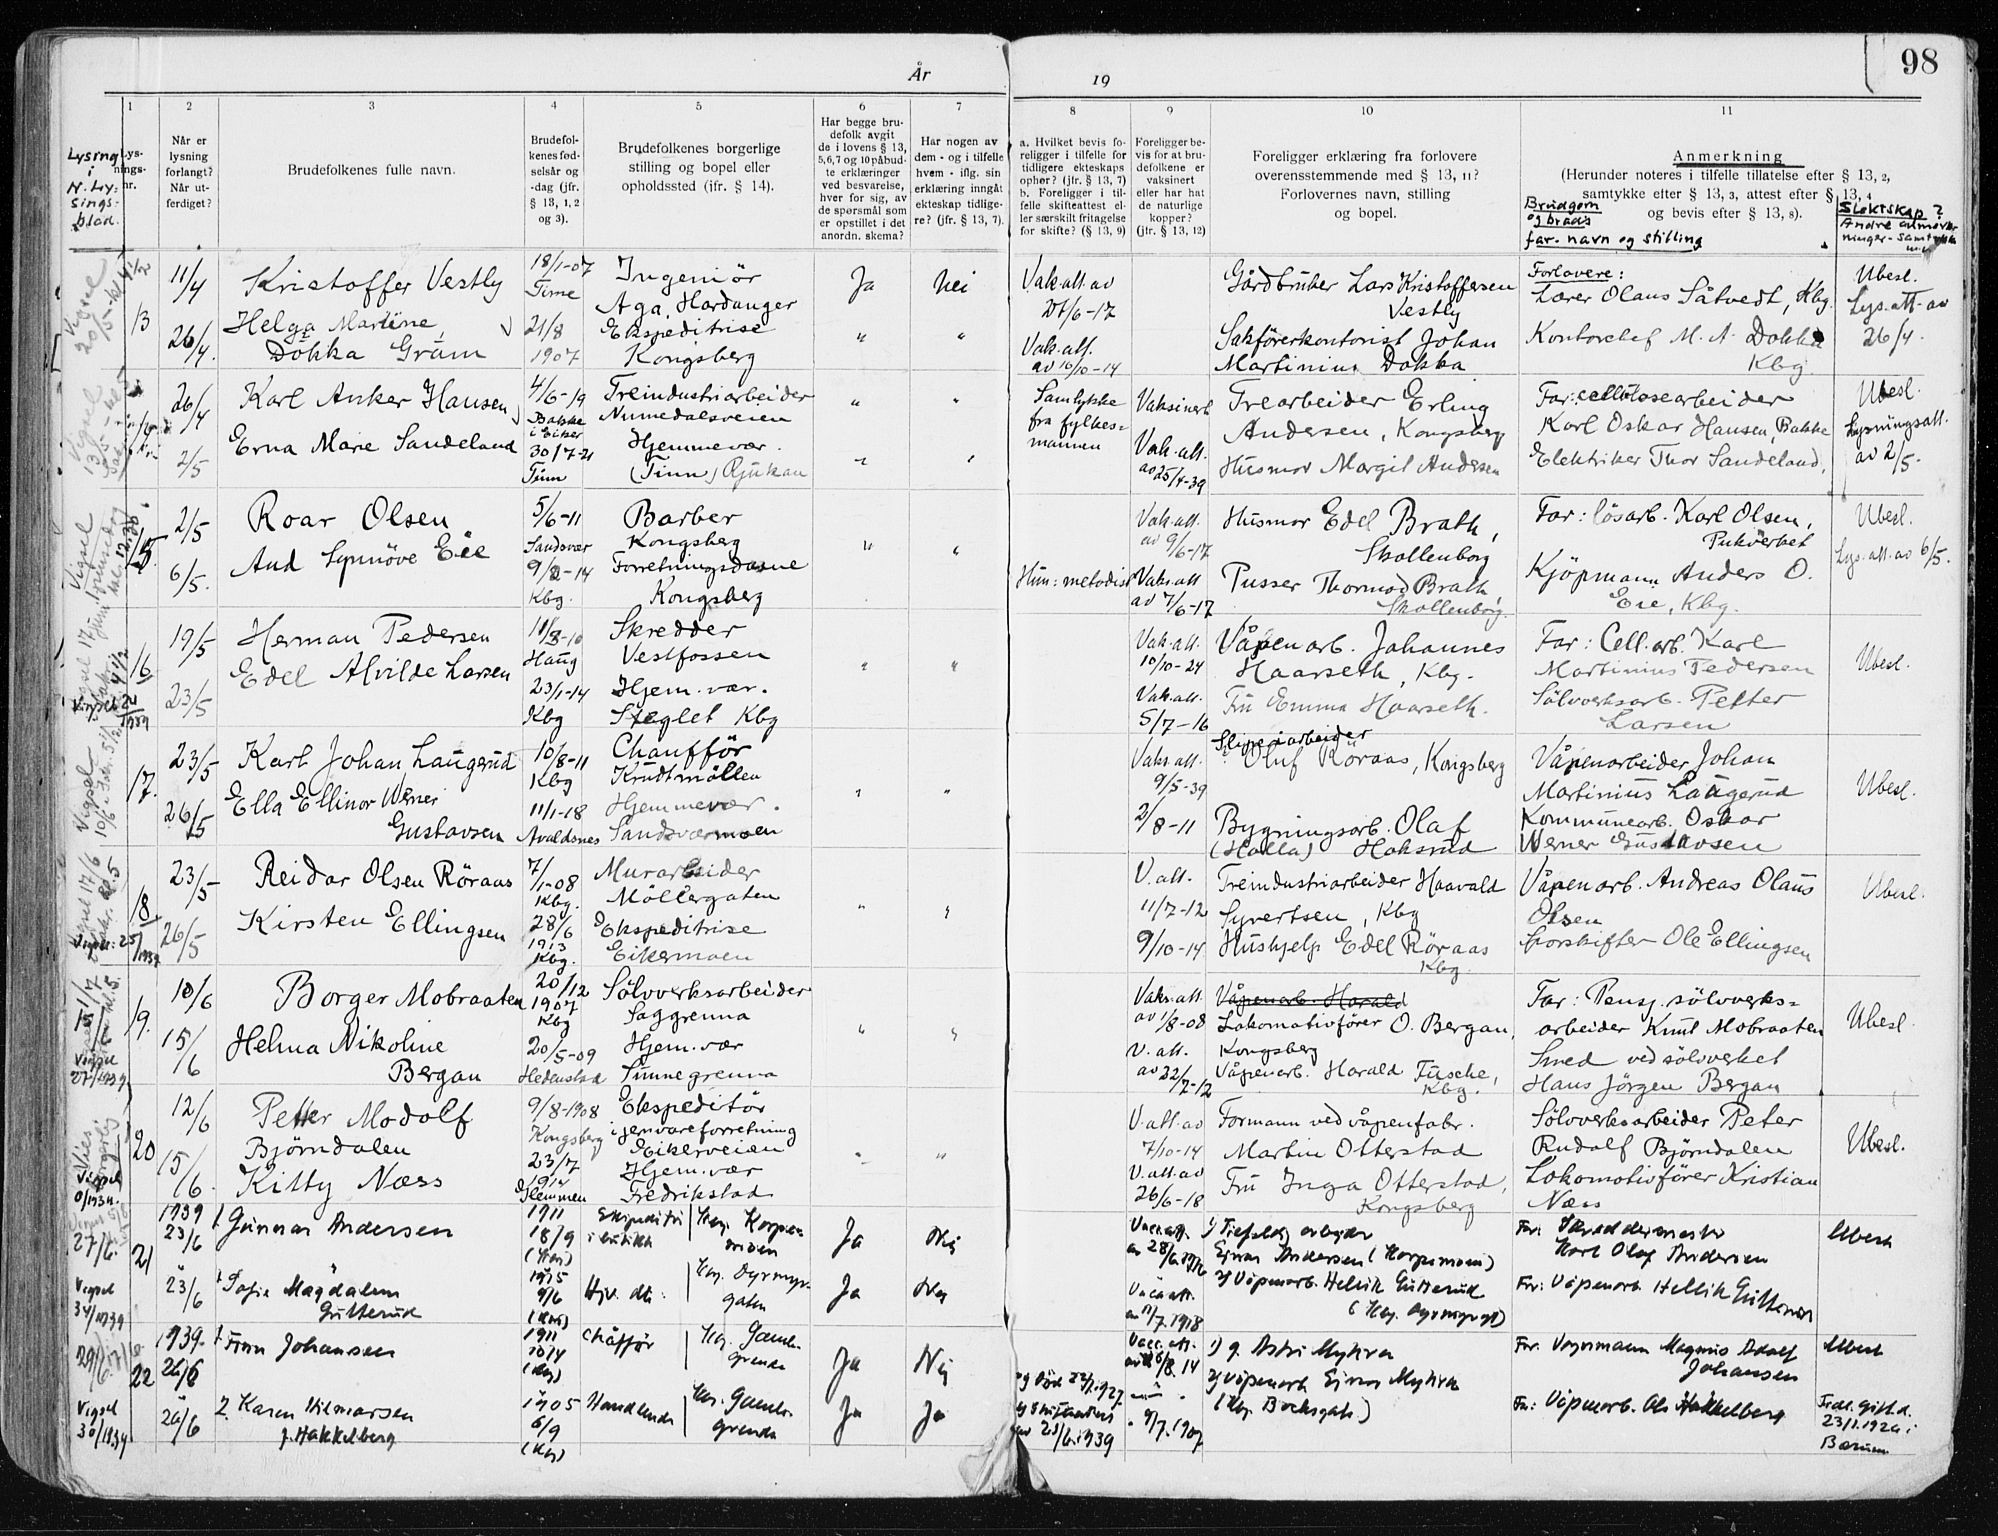 98
År
19
1
2
3
4
5
6
7
8
9
10
11
Lysing
i
N. Ly-
sings-
blad.
Lys-
nings-
nr.
Når er
lysning
forlangt?
Når ut-
ferdiget?
Brudefolkenes fulle navn.
Brudefol-
kenes fød-
selsår og
-dag (jfr.
§ 13, 1, 2
og 3).
Brudefolkenes borgerlige
stilling og bopel eller
opholdssted (jfr. § 14).
Har begge bru-
defolk avgit
de i lovens § 13,
5,6,7 og 10 påbud-
te erklæringer
ved besvarelse,
hver for sig, av
de spørsmål som
er opstillet i det
anordn. skema?
Har nogen av
dem - og i tilfelle
hvem - iflg. sin
erklæring inngått
ekteskap tidlige-
re? (jfr. § 13, 7).
a. Hvilket bevis fo-
religger i tilfelle for
tidligere ekteskaps
ophør? (jfr. § 13, 7)
b. Foreligger i til-
felle skifteattest el-
ler særskilt fritagelse
for skifte? (§ 13, 9)
Foreligger be-
vis for at bru-
defolkene er
vaksinert
eller har hat
de naturlige
kopper?
(jfr. § 13, 12)
Foreligger erklæring fra forlovere
overensstemmende med § 13, 11?
Forlovernes navn, stilling
og bopel.
Anmerkning
(Herunder noteres i tilfelle tillatelse efter § 13, 2,
samtykke efter § 13, 3, attest efter § 13, 4
og bevis efter § 13, 8).
Brudgom
og bruds
far- navn og stilling
Slektskap?
Andre anmerk-
ninger - samtykke
13
11/4
26/4.
Kristoffer Vestly
Helga Martine
Dokka Gram
18/1-07
Time
21/8
1907
Ingeniör
Aga, Hardanger
Ekspeditrise
Kongsberg
Ja
Nei
"
"
Vak.att. av
Vak.att.
av 16/10-14
Gårdbruker Lars Kristoffersen
Vestly
Sakförerkontorist Johan
Martinius Dokka
Forlovere:
Lærer Olaus Såtvedt, Kbg.
Kontorchef M. A. Dokka
Kbg
Ubesl.
Lys. att. av
26/4.
26/4
2/5
Karl Anker Hansen
Erna Marie Sandeland
4/6-19
Bakke
i Eiker
30/7-21
Tinn
Treindustriarbeider
Numedalsveien
Hjemmevær.
(Tinn) Rjukan
Samtykke
fra fylkes-
mannen
Vaksinert
Vak.att.
av 25/4-39
Trearbeider Erling
Andersen, Kongsberg
Husmor Margit Andersen
Far: cellulosearbeider
Karl Oskar Hansen, Bakke
Elektriker Thor Sandeland,
Ubesl.
Lysningsatt.
av 2/5-
15
2/5
6/5.
Roar Olsen
Aud Synnöve Eie
5/6-11
Sandsvær
9/2-14
Kbg.
Barber
Kongsberg
Forretningsdame
Kongsberg
Hun: metodist
Vak.att.
av 9/6-17
Vaks.att
av 7/6-17
Husmor Edel Brath,
Skollenborg
Pusser Thormod Brath
Skollenborg.
Far: lösarb. Karl Olsen,
Pukverket
Kjöpmann Anders O.
Eie, Kbg.
Ubesl.
Lys.att.av 6/5.
16
19/5
23/5
Herman Pedersen
Edel Alvilde Larsen
11/8-10
Haug
23/1-14
Kbg
Skredder
Vestfossen
Hjem.vær.
Steglet Kbg
Vak.att.
10/10-24
Vak.att.
5/7-16
Våpenarb. Johannes
Haarseth, Kbg.
Fru Emma Haarseth.
Far: Cell.arb. Karl
Martinius Pedersen
Sölvverksarb. Petter
Larsen
Ubesl.
17.
23/5
26/5
Karl Johan Laugerud
Ella Ellinor Werner
Gustavsen
10/8-11
Kbg
11/1-18
Avaldsnes
Chaufför
Krudtmöllen
Hjemmevær.
Sandsværmoen
Vaks.att.
9/5-39
2/8-11
Sliperiarbeider
Oluf Röraas, Kongsberg
Bygningsarb. Olaf
(Halla) Hoksrud
Våpenarbeider Johan
Martinius Laugerud
Kommunearb. Oskar
Werner Gustavsen
Ubesl.
18
23/5
26/5
Reidar Olsen Röraas
Kirsten Ellingsen
7/1-08
Kbg.
28/6
1913
Kbg.
Murarbeider
Möllergaten
Ekspeditrise
Eikermoen
V. att.
11/7-12
9/10-14
Treindustriarbeider Haavald
Syvertsen, Kbg
Hushjelp Edel Röraas
Kbg.
Våpenarb. Andreas Olaus
Olsen
Sporskifter Ole Ellingsen
Ubesl.
19.
10/6
15/6
Borger Mobraaten
Helma Nikoline
Bergan
20/12
1907
Kbg
20/5-09
Hedenstad
Sölvverksarbeider
Saggrenna
Hjem.vær
Sunnegrenna
Vaks.att.
av 1/8-08
V. att.
av 22/7-12
Våpenarb. Harald
Lokomotivförer O. Bergan,
Kongsberg
Våpenarb. Harald Fusche,
Kbg.
Far: Pensj. sölvverks-
arbeider Knut Mobraaten
Smed ved sölvverket
Hans Jörgen Bergan
Ubesl.
20
12/6
15/6.
Petter Modolf
Björndalen
Kitty Næss
9/8-1908
Kongsberg
23/7
1914
Glemmen
Ekspeditör
i jernvareforretning
Eikerveien
Hjem.vær
Fredrikstad
V.att.av
7/10-14
V.att.av
26/6-18
Formann ved våpenfabr.
Martin Otterstad
Fru Inga Otterstad,
Kongsberg
Sölvverksarbeider Peter
Rudolf Björndalen
Lokomotivförer Kristian
Næss
Ubesl.
21
1939
23/6
23/6
1. Gunnar Andersen
2. Sofie Magdalene
Gutterud
1911
18/9
(Kbg)
1915
9/6
(Kbg)
Ekspeditör
i butikk
Kbg. Korpe-
moen
Hjv. dtr.
Kbg. Dyrmyr-
gaten
Ja
Nei
Ja
Nei
Vacc.att.
av 28/6.1916
Vacc.att.
av 11/7.1918
Einar Andersen (Korpemoen)
2) Våpenarb. Hellik Gutterud
(Kbg. Dyrmyrgt)
Far: Skreddermester
Karl Olaf Andersen
Far: Våpenarb Hellik Gutterud
Ubesl
22
1939.
26/6
26/6
1. Finn Johansen
2. Karen Hilmarsen
f. Hakkelberg
1911
10/4
(Kbg)
1905
6/9
(Kbg)
Chaffør
Kbg. Gamle-
grenda
Handlende
Kbg. Gamle-
grenda
Ja
Nei
Ja
Ja
1) g. Astri Myhra
2) våpenarb Einar Myhra
(Kbg. Bekkegt.)
9/7.1907
Magnus Adolf
Johansen
Far: Våpenarb. Ole Hakkelberg
Ubesl
Fral. gift d.
23/1.1926 i
Bærum
Vigsel
27/6.
Vigsel
34/1939
Vigsel
30/1939